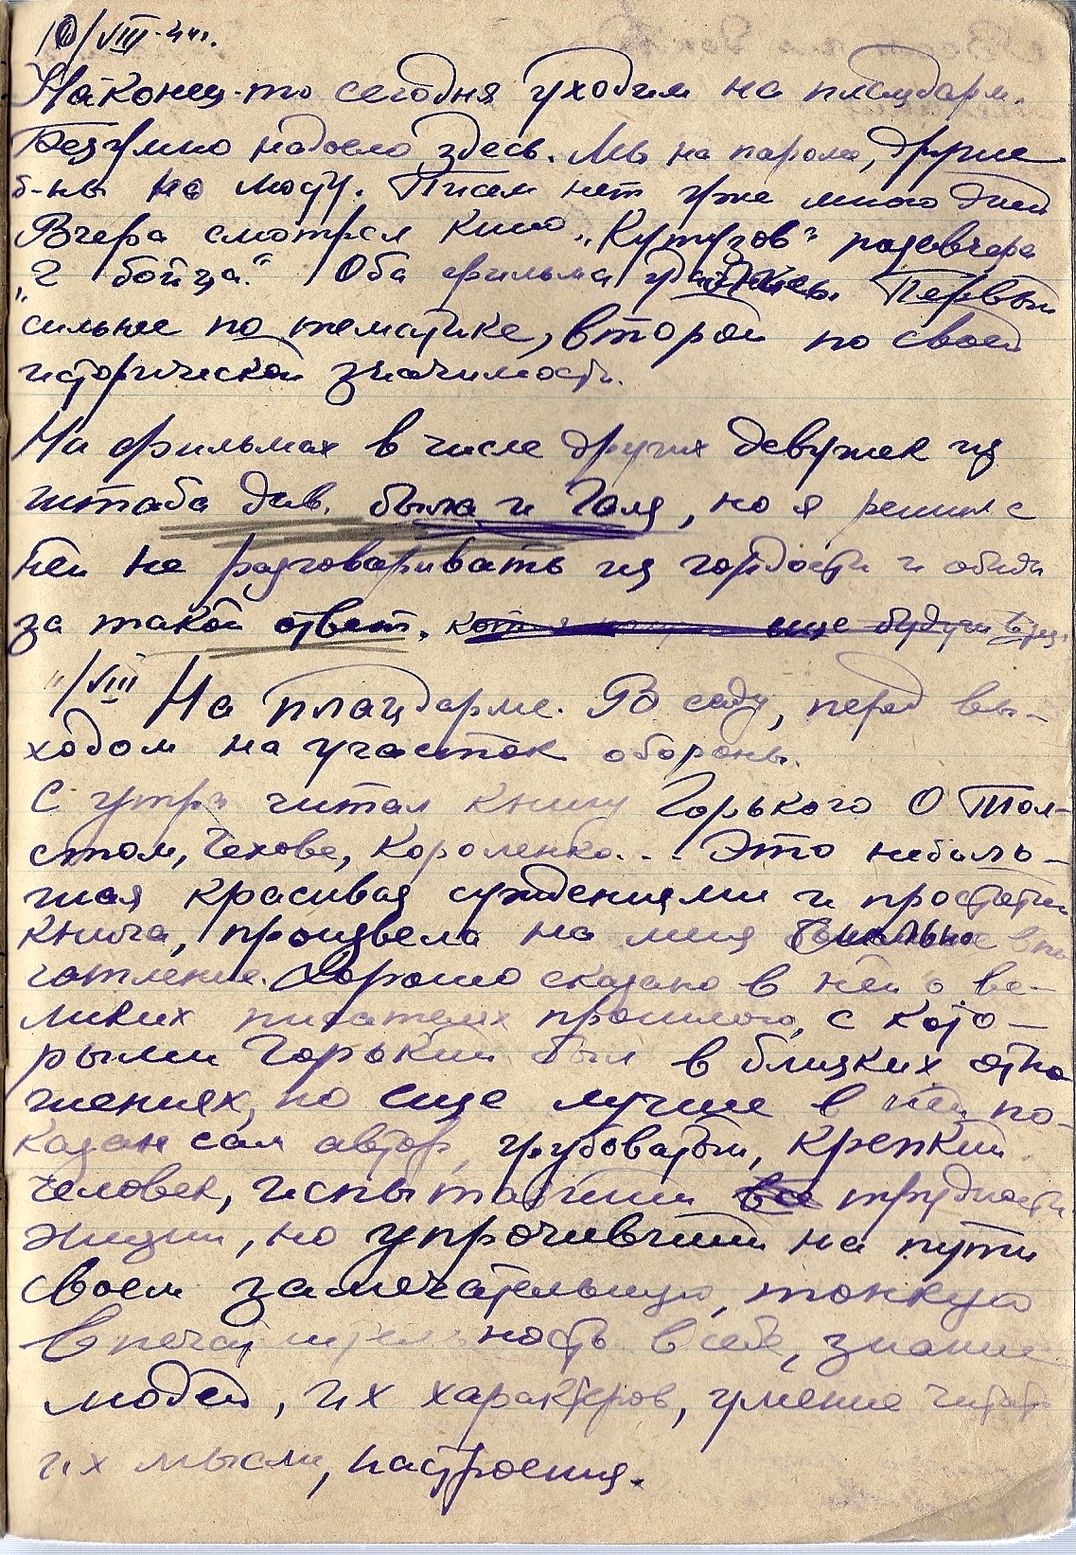 10/VIII-44г.
Наконец-то сегодня уходим на плацдарм.
Безумно надоело здесь. Мы на пароме, другие
б-ны на мосту. Писем нет уже много дней
Вчера смотрел кино „Кутузов" позавчера
„2 бойца". Оба фильма удались. Первый
сильнее по тематике, второй по своей
исторической значимости.
На фильмах в числе других девушек из
штаба див. была и Галя, но я решил с
ней не разговаривать из гордости и обиды
за такой ответ. еще будучи
11/VIII На плацдарме. В саду, перед вы-
ходом на участок обороны.
С утра читал книгу Горького О Тол-
стом, Чехове, Короленко... Это неболь-
шая красивая суждениями и простотой
книга, произвела на меня сильное впе
чатление. Хорошо сказано в ней о ве-
ликих писателях прошлого, с кото-
рыми Горький был в близких отно
шениях, но еще лучше в ней по-
казан сам автор, грубоватый, крепкий
человек, испытавший все трудности
жизни, но упрочивший на пути
своем замечательную, тонкую
впечатлительность в себе, знание
людей, их характеров, умение читать
их мысли, настроения.